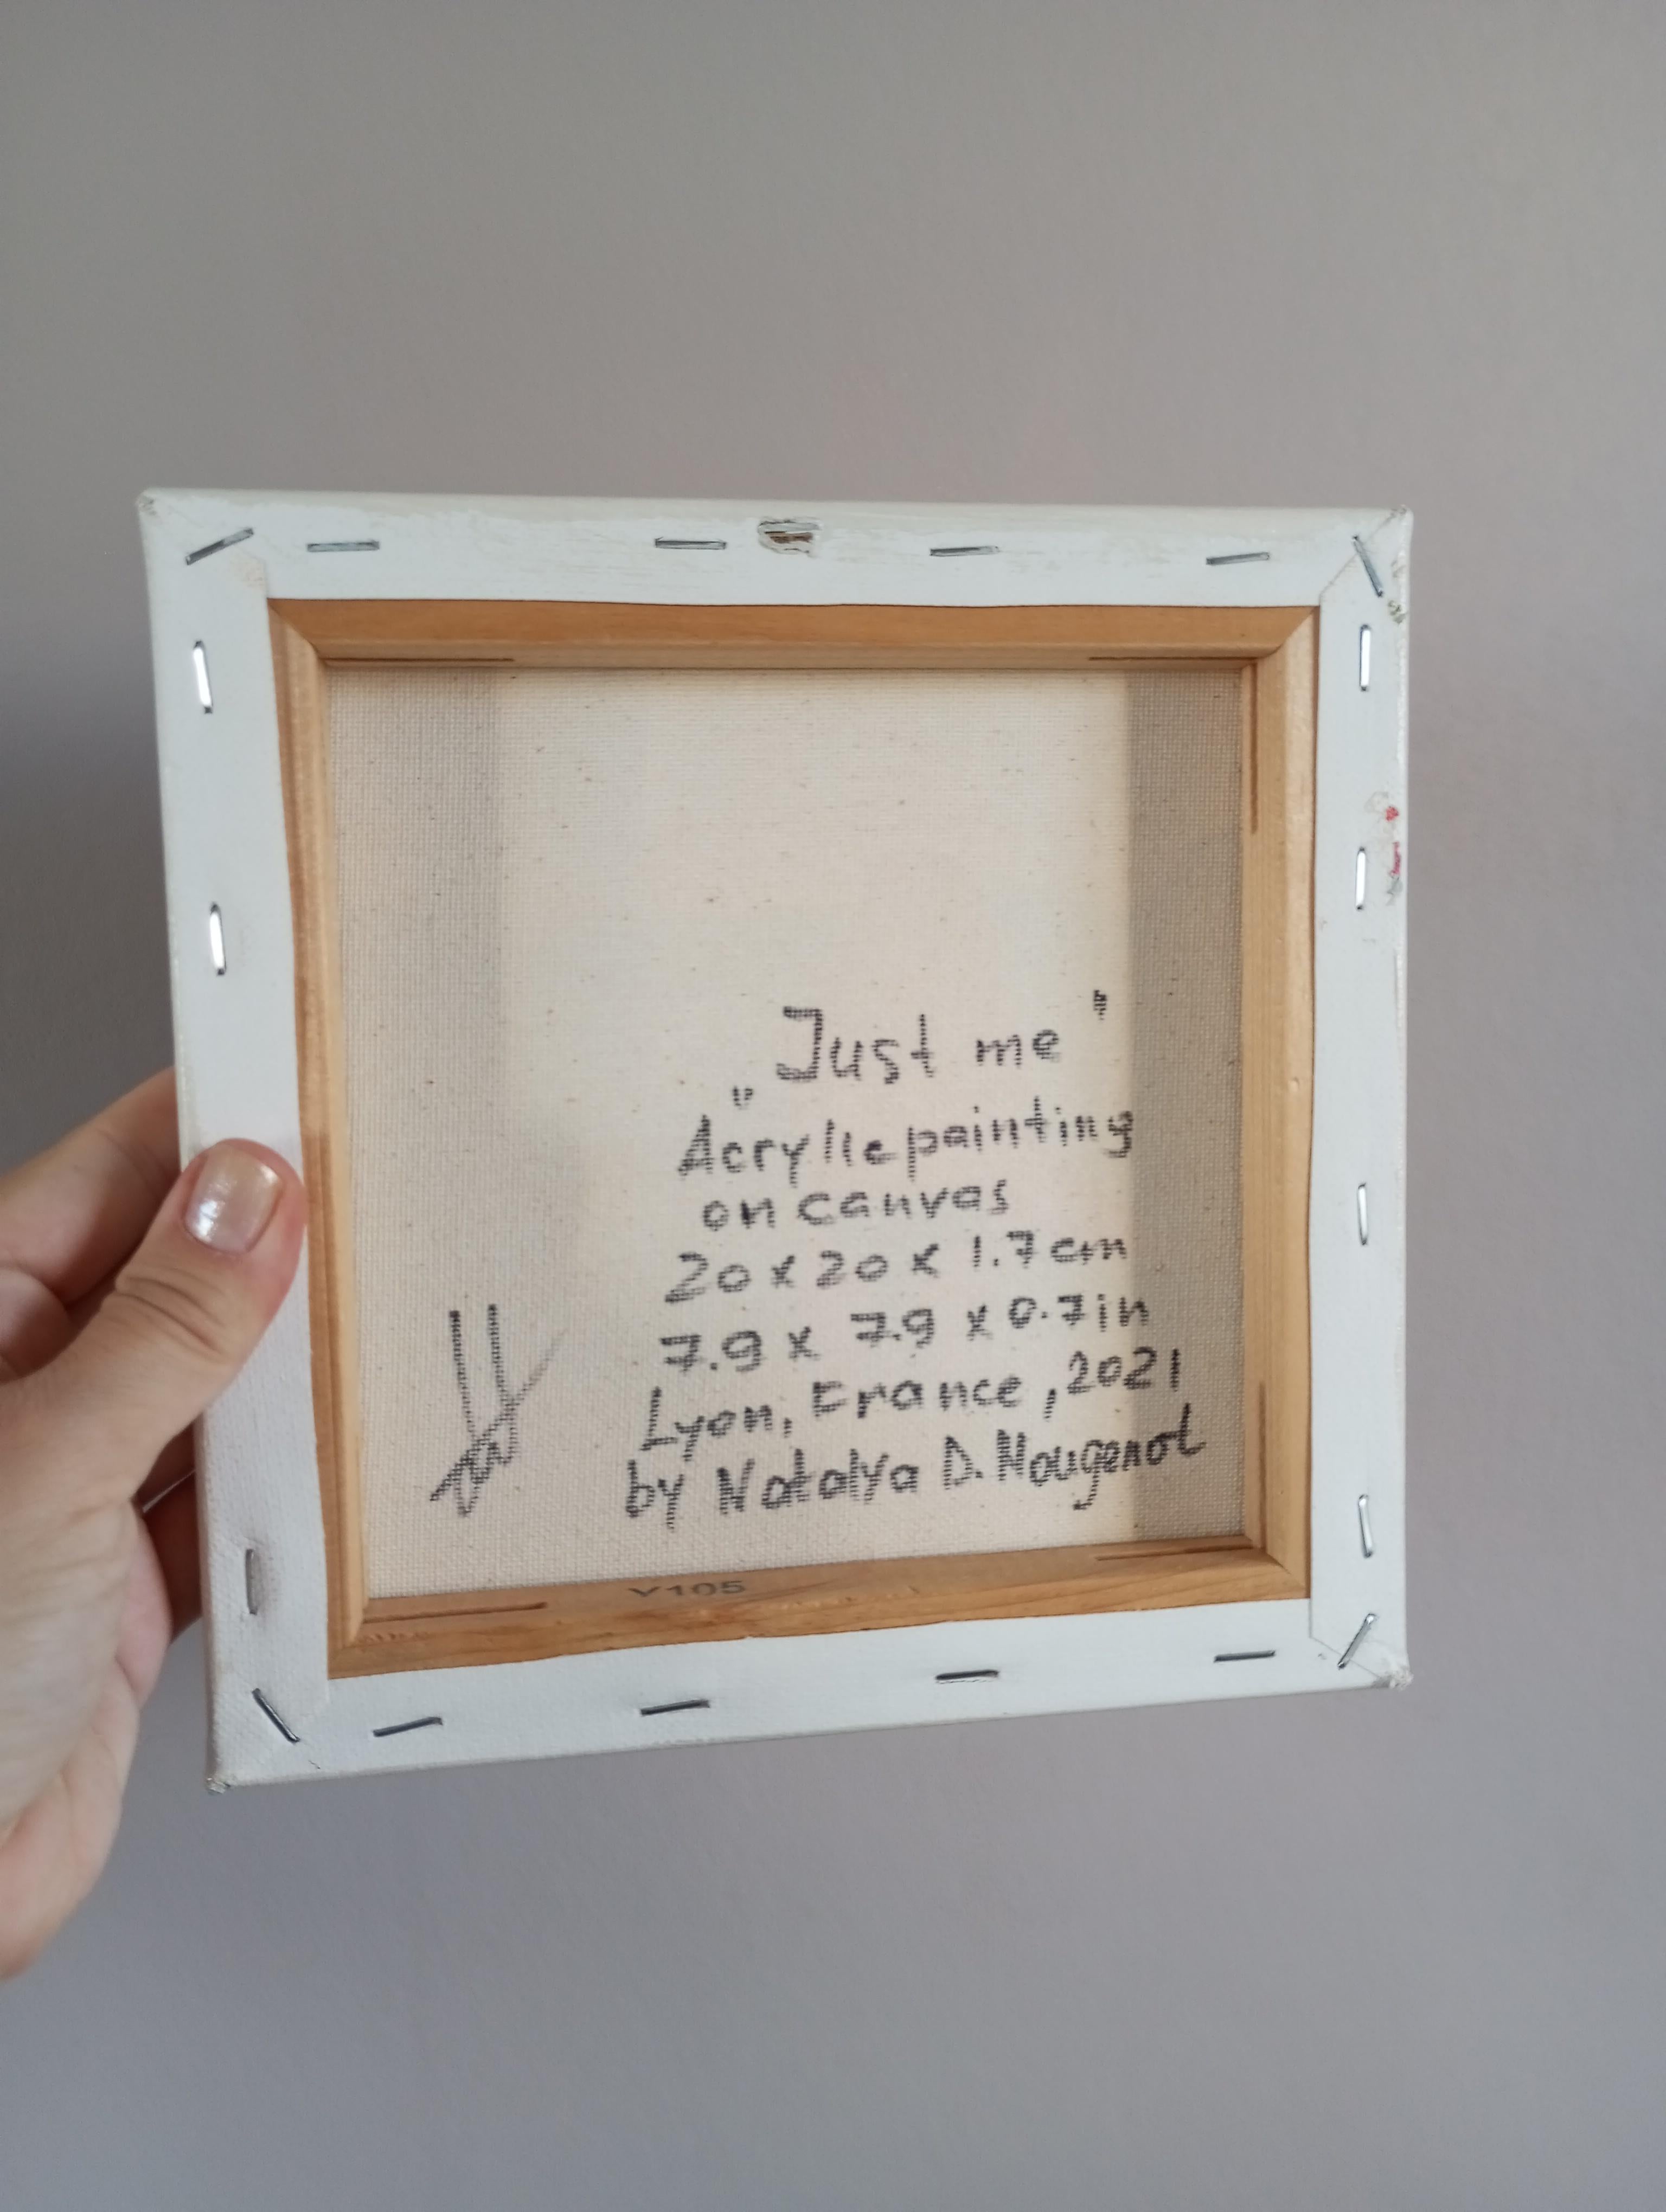 „Just me"
Acrylic painting
on canvas
20 x 20 x 1.7 cm
7.9 x 7.9 x 0.7 in
Lyon, France, 2021
by Natalya D. Nougenot
V105